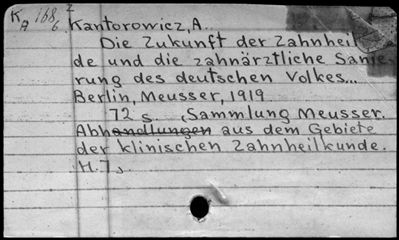 K 168 2 Kantorowicz, A..
A 6
Die Zukunft der Zahnheil
de und die zahnärztliche Sanie
rung des deutschen Volkes...
Berlin, Meusser, 1919
72 s. (Sammlung Meusser.
Abhandlungen aus dem Gebiete
der klinischen Zahnheilkunde.
H.7).